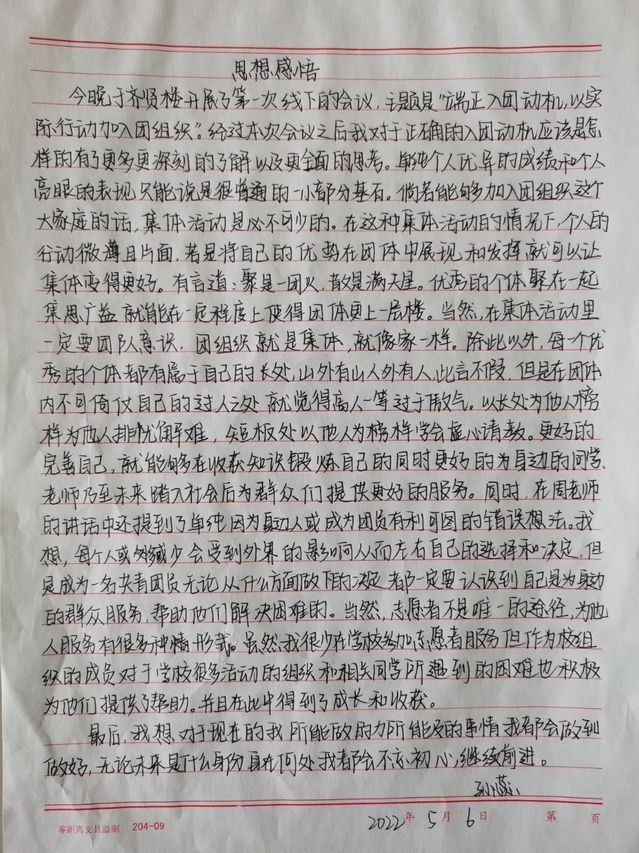 思想感悟
今晚于齐贤楼开展了第一次线下的会议，主题是“端正入团动机，以实
际行动加入团组织”。经过本次会议之后我对于正确的入团动机应该是怎
样的有了更多更深刻的了解以及更全面的思考。单纯个人优异的成绩和个人
亮眼的表现只能说是很普通的一小部分基石。倘若能够加入团组织这个
大家庭的话，集体活动是必不可少的。在这种集体活动的情况下，个人的
行动微薄且片面，若是将自己的优势在团体中展现和发挥就可以让
集体变得更好。有言道：聚是一团火，散是满天星。优秀的个体聚在一起
集思广益就能在一定程度上使得团体更上一层楼。当然，在集体活动里
一定要团队意识，团组织就是集体，就像家一样。除此以外，每一个优
秀的个体都有属于自己的长处，山外有山人外有人，此言不假，但是在团体
内不可倚仗自己的过人之处就觉得高人一等过于傲气。以长处为他人榜
样为他人排忧解难，短板处以他人为榜样学会虚心请教。更好的
完善自己，就能够在收获知识锻炼自己的同时更好的为身边的同学、
老师乃至未来踏入社会后为群众们提供更好的服务。同时，在周老师
的讲话中还提到了单纯因为身边人或成为团员有利可图的错误想法。我
想，每个人或多或少会受到外界的影响从而左右自己的选择和决定，但
是成为一名共青团员无论从什么方面做下的决定都一定要认识到自己是为身边
的群众服务，帮助他们解决困难的。当然，志愿者不是唯一的途径，为他
人服务有很多种形式。虽然我很少在学校参加志愿者服务但作为校组
织的成员对于学校很多活动的组织和相关同学所遇到的困难也积极
为他们提供了帮助。并且在此中得到了成长和收获。
最后，我想对于现在的我所能做的力所能及的事情我都会做到
做好，无论未来是什么身份身在何处我都会不忘初心，继续前进。
2022年5月6日
零距离文具监制 204-09 第 页